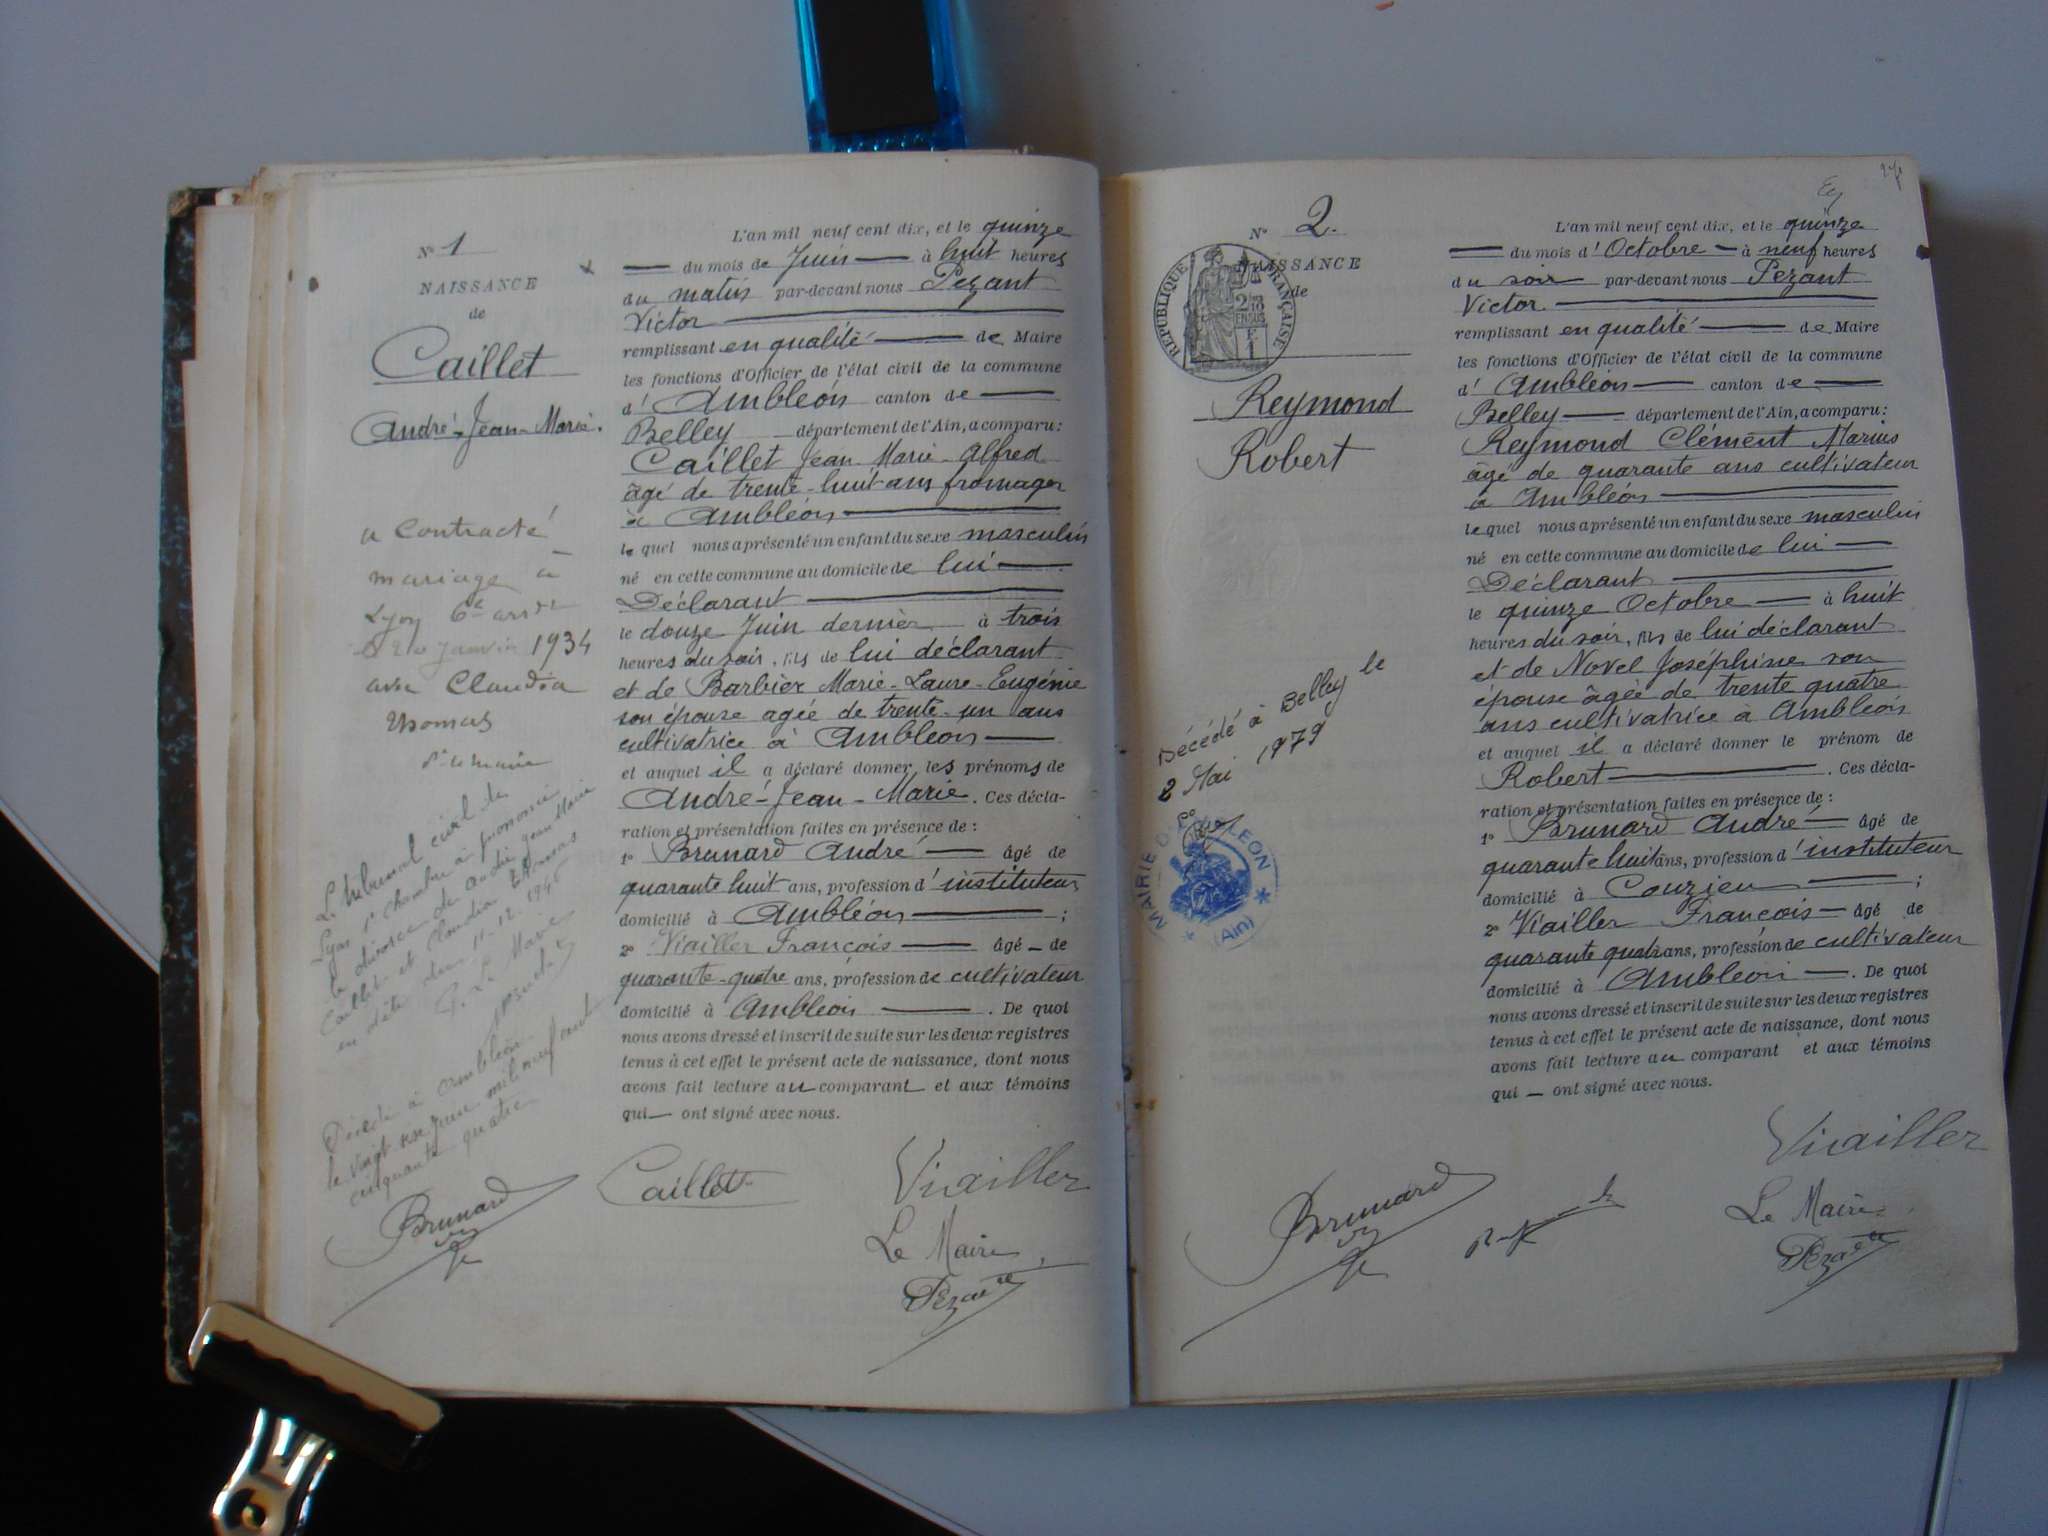 N° 1
NAISSANCE
de
Caillet
André-Jean-Marie.
a contracté
mariage à
Lyon 6e arrdt
janvier 1934
avec Claudia
Thomas
Pr le maire
Le tribunal civil de
Lyon 1e chambre a prononcé
le divorce de André Jean Marie
Caillet et Claudia Thomas
en date du 11-12-1946
P. Le Maire
Décédé à Ambléon
le vingt juin mil neuf cent
cinquante quatre
L'an mil neuf cent dix, et le quinze
du mois de Juin à huit heures
du matin par-devant nous Pezant
Victor
remplissant en qualité de Maire
les fonctions d'Officier de l'état civil de la commune
d' Ambléon canton de
Belley département de l'Ain, a comparu :
Caillet Jean Marie Alfred
âgé de trente-huit ans fromager
à Ambléon
lequel nous a présenté un enfant du sexe masculin
né en cette commune au domicile de lui
Déclarant
le douze Juin dernier à trois
heures du soir, fils de lui déclarant
et de Barbier Marie-Laure-Eugénie
son épouse agée de trente-un ans
cultivatrice à Ambléon
et auquel il a déclaré donner les prénoms de
André-Jean-Marie. Ces décla-
ration et présentation faites en présence de :
1° Brunard André âgé de
quarante huit ans, profession d'instituteur
domicilié à Ambléon ;
2° Viailler François âgé de
quarante-quatre ans, profession de cultivateur
domicilié à Ambléon. De quoi
nous avons dressé et inscrit de suite sur les deux registres
tenus à cet effet le présent acte de naissance, dont nous
avons fait lecture au comparant et aux témoins
qui ont signé avec nous.
Brunard
Caillet
Viailler
Le Maire
Pezant
N° 2.
NAISSANCE
de
RÉPUBLIQUE FRANÇAISE
Reymond
Robert
Décédé à Belley le
2 Mai 1979
MAIRIE D'AMBLEON
(Ain)
L'an mil neuf cent dix, et le quinze
du mois d'Octobre à neuf heures
du soir par-devant nous Pezant
Victor
remplissant en qualité de Maire
les fonctions d'Officier de l'état civil de la commune
d' Ambléon canton de
Belley département de l'Ain, a comparu :
Reymond Clément Marius
âgé de quarante ans cultivateur
à Ambléon
lequel nous a présenté un enfant du sexe masculin
né en cette commune au domicile de lui
Déclarant
le quinze Octobre à huit
heures du soir, fils de lui déclarant
et de Novel Joséphine son
épouse âgée de trente quatre
ans cultivatrice à Ambléon
et auquel il a déclaré donner le prénom de
Robert. Ces décla-
ration et présentation faites en présence de :
1° Brunard André âgé de
quarante huit ans, profession d'instituteur
domicilié à Conzieu ;
2° Viailler François âgé de
quarante quatre ans, profession de cultivateur
domicilié à Ambléon. De quoi
nous avons dressé et inscrit de suite sur les deux registres
tenus à cet effet le présent acte de naissance, dont nous
avons fait lecture au comparant et aux témoins
qui ont signé avec nous.
Viailler
Brunard
Le Maire
Pezant